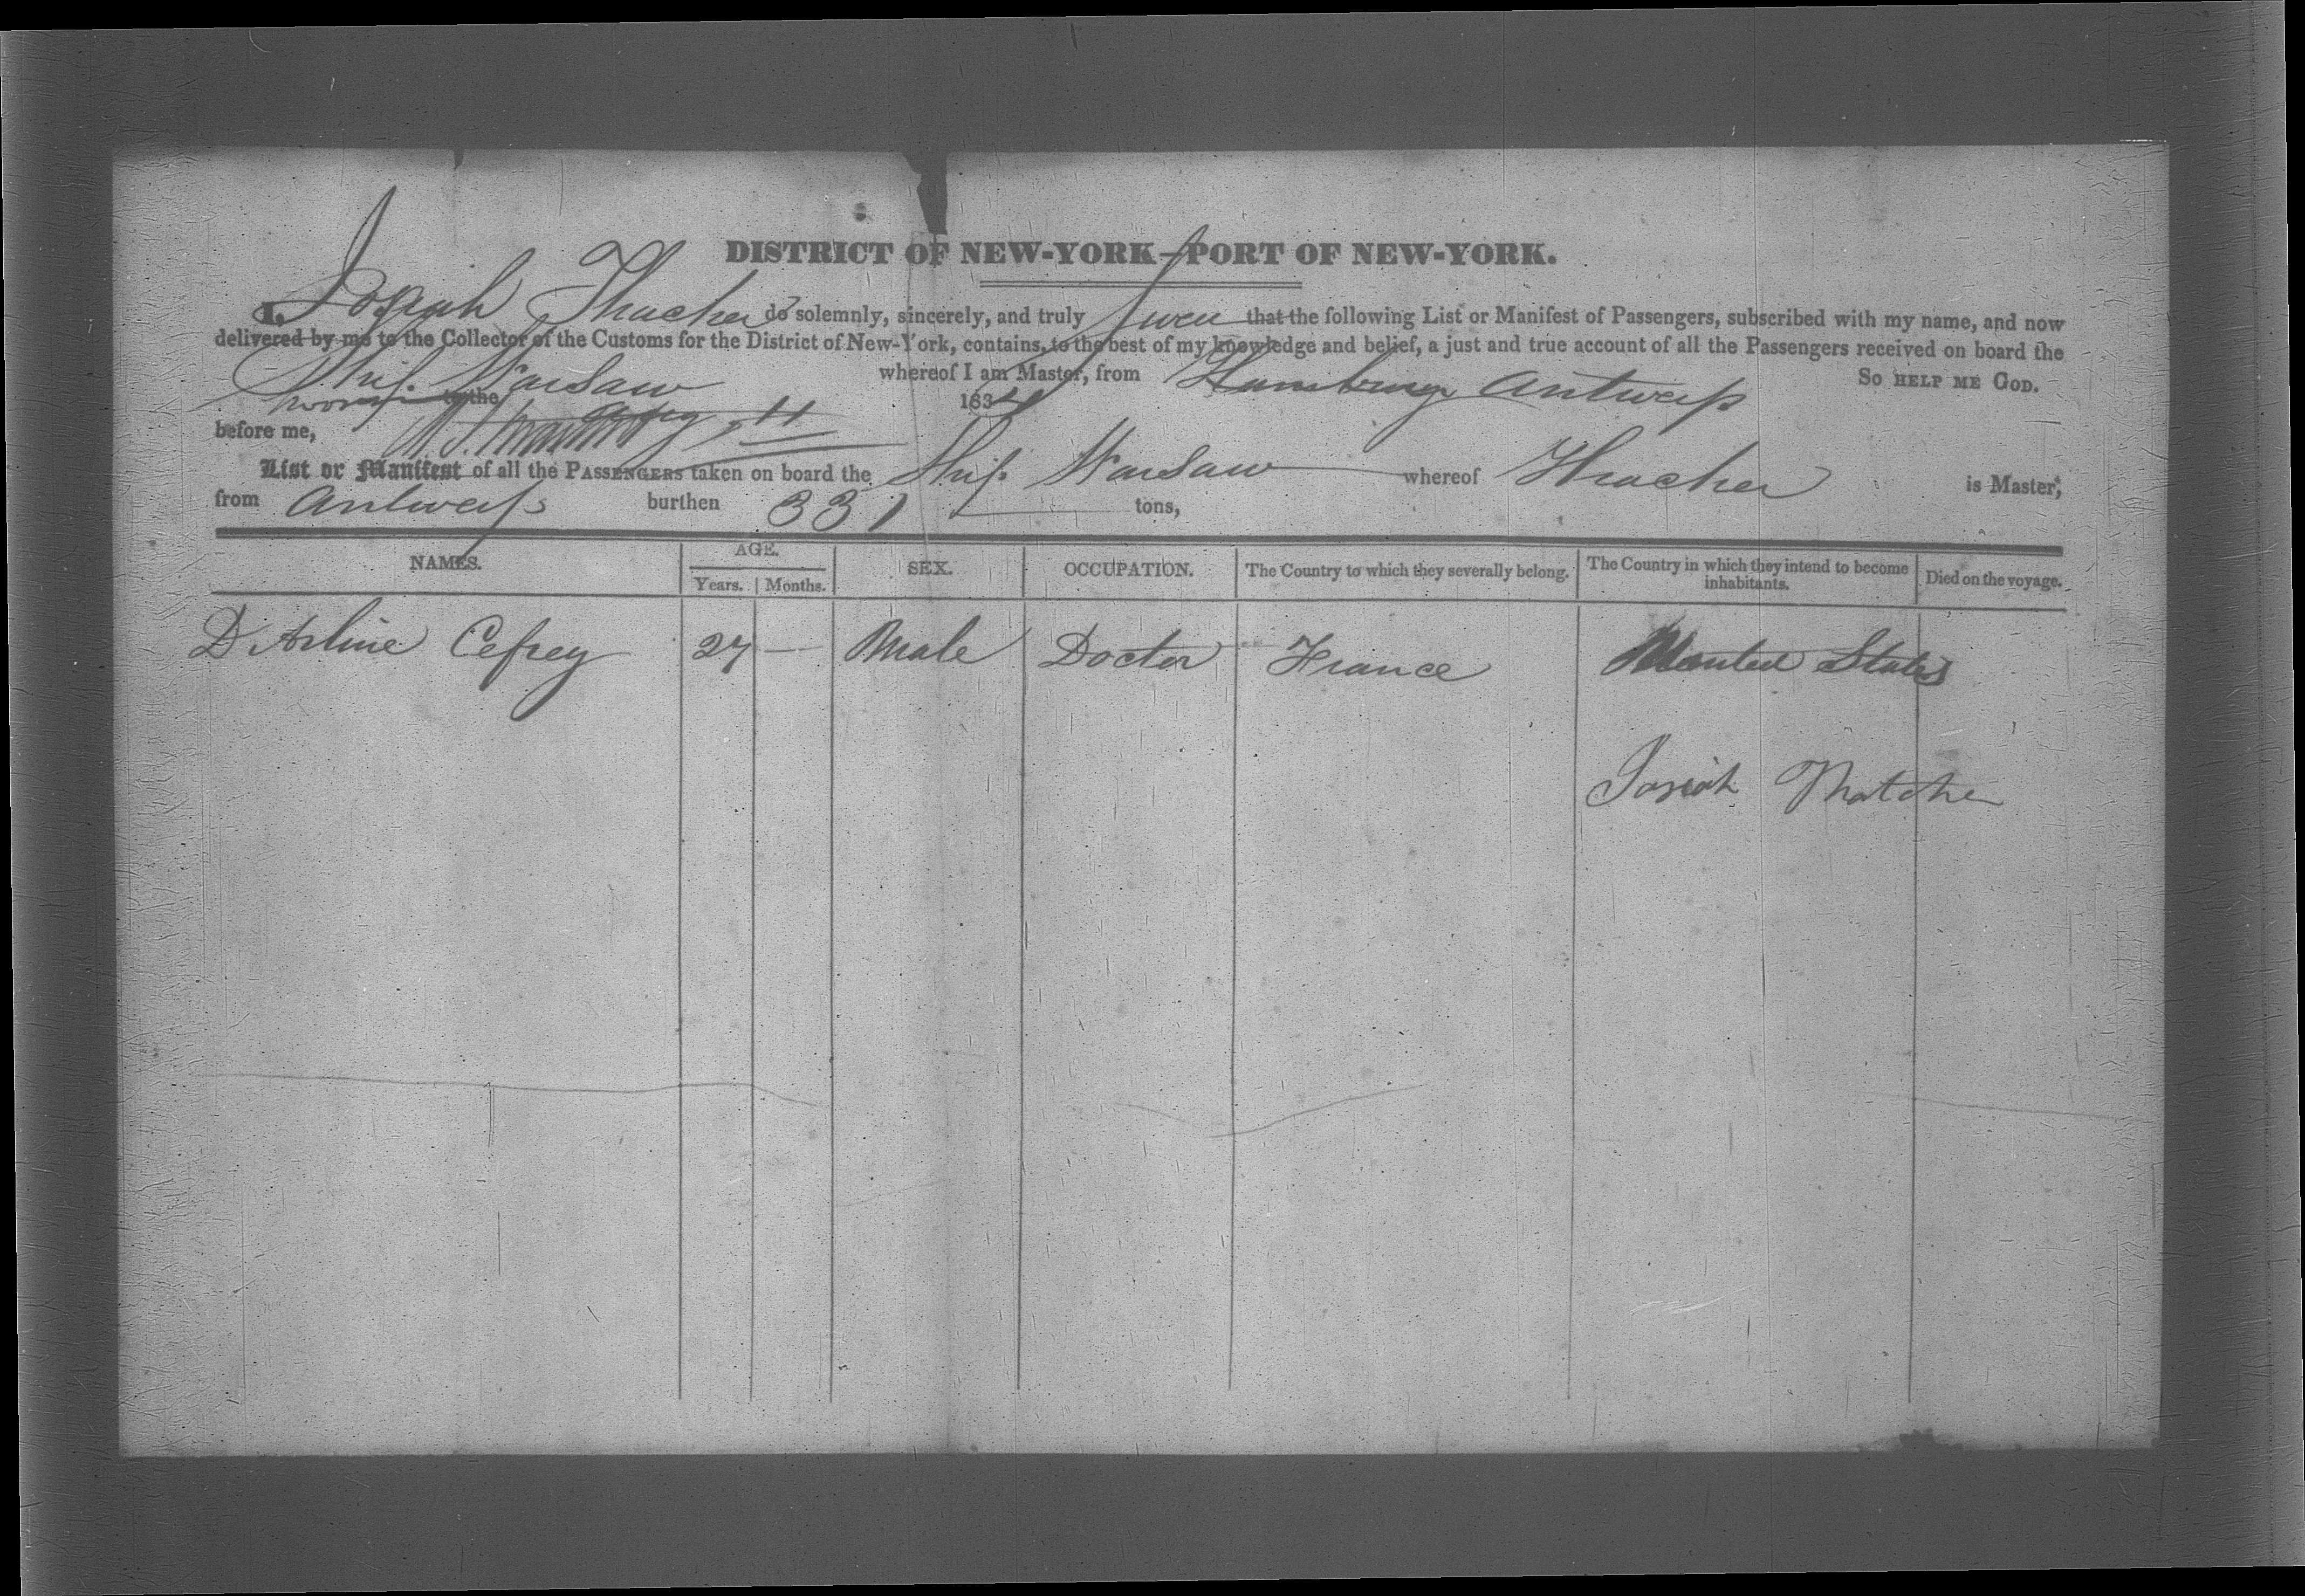 DISTRICT OF NEW-YORK—PORT OF NEW-YORK.
I, Josiah Thacher do solemnly, sincerely, and truly swear that the following List or Manifest of Passengers, subscribed with my name, and now
delivered by me to the Collector of the Customs for the District of New-York, contains, to the best of my knowledge and belief, a just and true account of all the Passengers received on board the
Ship Warsaw whereof I am Master, from Hamburg Antwerp So HELP ME GOD.
Sworn to the Aug 11 183
before me,
List or Manifest of all the PASSENGERS taken on board the Ship Warsaw whereof Thacher is Master,
from Antwerp burthen 331 tons,
NAMES. AGE. SEX. OCCUPATION. The Country to which they severally belong. The Country in which they intend to become inhabitants. Died on the voyage.
Years. Months.
D Arline Cefrey 27 — Male Doctor France United States
Josiah Thatcher